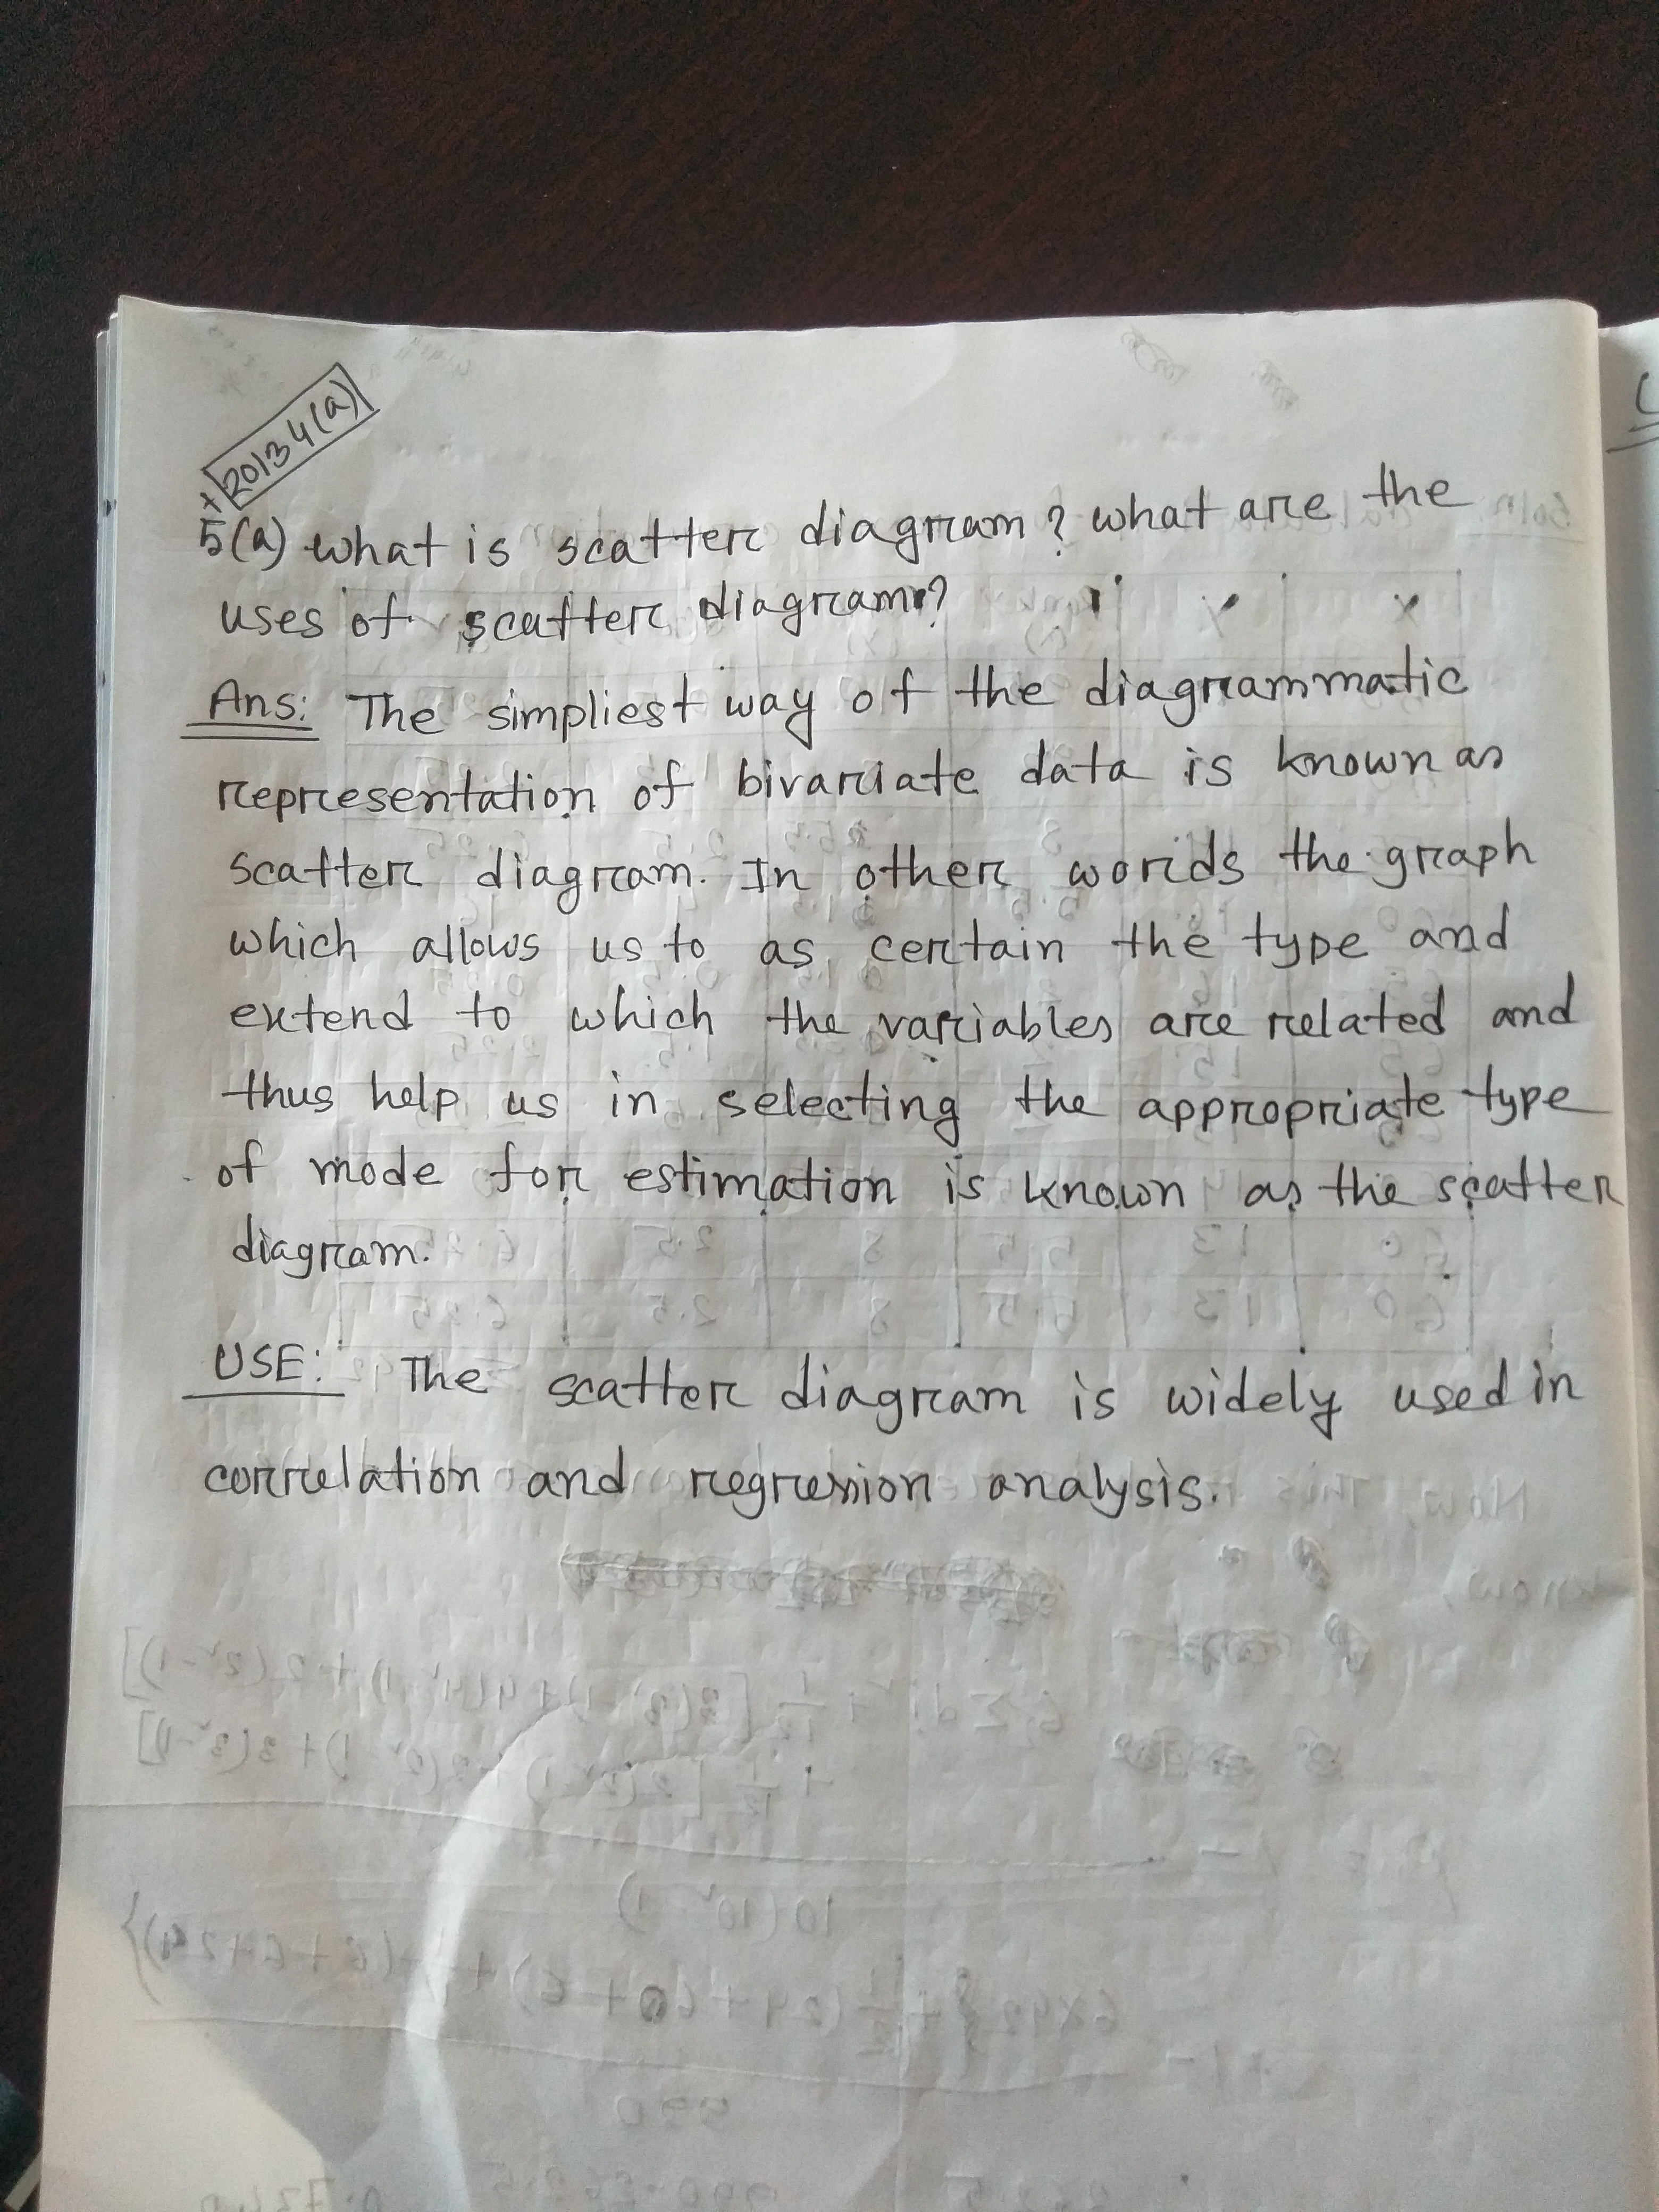 + 2013 4(a)
5(a) what is scatter diagram? what are the
uses of scatter diagram?
Ans: The simpliest way of the diagrammatic
representation of bivariate data is known as
scatter diagram. In other words the graph
which allows us to as certain the type and
extend to which the variables are related and
thus help us in selecting the appropriate type
of mode for estimation is known as the scatter
diagram.
USE: The scatter diagram is widely used in
correlation and regression analysis.